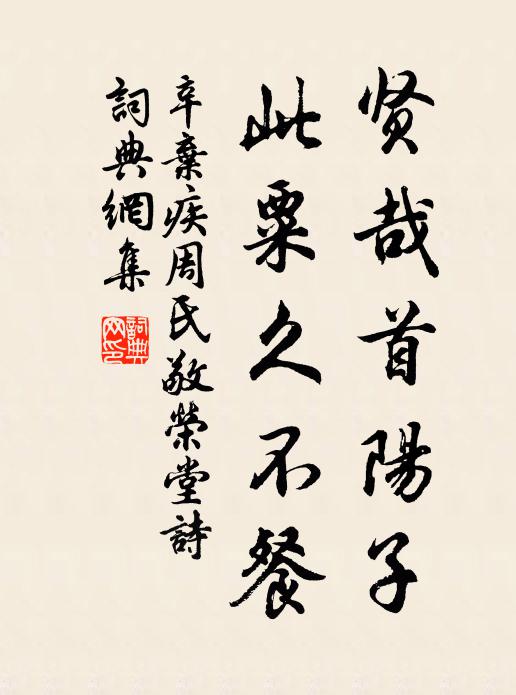 贤哉首陽子
此粟久不餐
辛棄疾周氏敬榮堂詩
詞典網集
詞典
网印